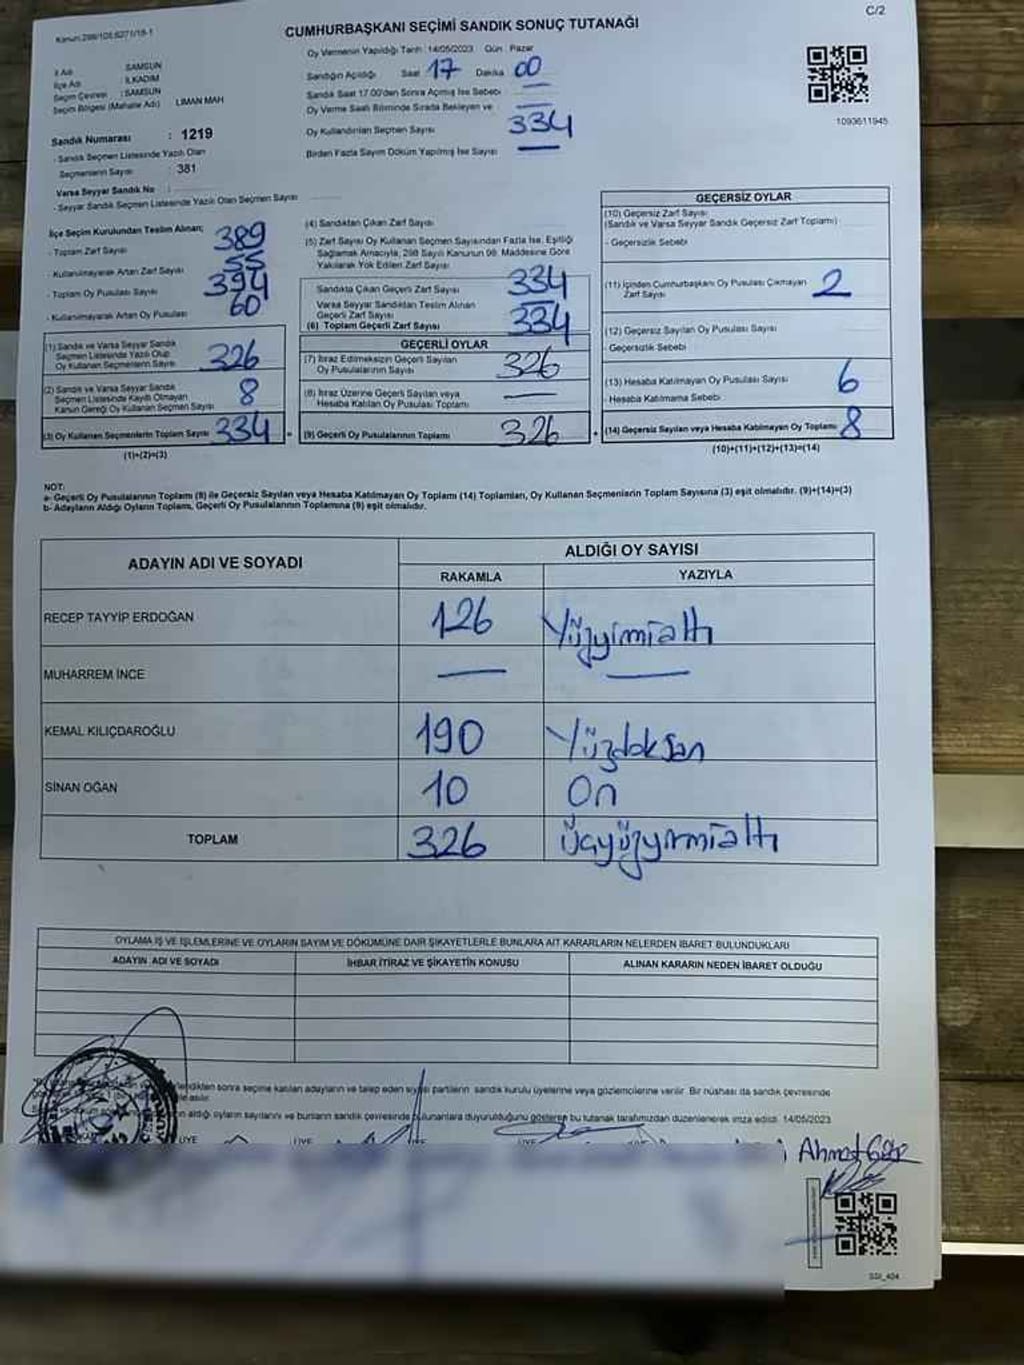 C/2
Kanun:298/105,6271/18-1
CUMHURBAŞKANI SEÇİMİ SANDIK SONUÇ TUTANAĞI
Oy Vermenin Yapıldığı Tarih : 14/05/2023 Gün : Pazar
İl Adı : SAMSUN
İlçe Adı : İLKADIM
Seçim Çevresi : SAMSUN
Seçim Bölgesi (Mahalle Adı) LİMAN MAH
Sandığın Açıldığı Saat 17 Dakika 00
Sandık Saat 17.00'den Sonra Açılmış İse Sebebi
Oy Verme Saati Bitiminde Sırada Bekleyen ve
Oy Kullandırılan Seçmen Sayısı 334
Birden Fazla Sayım Döküm Yapılmış İse Sayısı
1093611945
Sandık Numarası : 1219
- Sandık Seçmen Listesinde Yazılı Olan
Seçmenlerin Sayısı : 381
Varsa Seyyar Sandık No :
- Seyyar Sandık Seçmen Listesinde Yazılı Olan Seçmen Sayısı
İlçe Seçim Kurulundan Teslim Alınan;
- Toplam Zarf Sayısı 389
- Kullanılmayarak Artan Zarf Sayısı 55
- Toplam Oy Pusulası Sayısı 394
- Kullanılmayarak Artan Oy Pusulası 60
(1) Sandık ve Varsa Seyyar Sandık
Seçmen Listesinde Yazılı Olup
Oy Kullanan Seçmenlerin Sayısı 326
(2) Sandık ve Varsa Seyyar Sandık
Seçmen Listesinde Kayıtlı Olmayan
Kanun Gereği Oy Kullanan Seçmen Sayısı 8
(3) Oy Kullanan Seçmenlerin Toplam Sayısı 334 =
(1)+(2)=(3)
(4) Sandıktan Çıkan Zarf Sayısı
(5) Zarf Sayısı Oy Kullanan Seçmen Sayısından Fazla İse, Eşitliği
Sağlamak Amacıyla, 298 Sayılı Kanunun 98. Maddesine Göre
Yakılarak Yok Edilen Zarf Sayısı
Sandıkta Çıkan Geçerli Zarf Sayısı 334
Varsa Seyyar Sandıktan Teslim Alınan
Geçerli Zarf Sayısı
(6) Toplam Geçerli Zarf Sayısı 334
GEÇERLİ OYLAR
(7) İtiraz Edilmeksizin Geçerli Sayılan
Oy Pusulalarının Sayısı 326
(8) İtiraz Üzerine Geçerli Sayılan veya
Hesaba Katılan Oy Pusulası Toplamı
(9) Geçerli Oy Pusulalarının Toplamı 326 +
GEÇERSİZ OYLAR
(10) Geçersiz Zarf Sayısı
(Sandık ve Varsa Seyyar Sandık Geçersiz Zarf Toplamı)
- Geçersizlik Sebebi
(11) İçinden Cumhurbaşkanı Oy Pusulası Çıkmayan
Zarf Sayısı 2
(12) Geçersiz Sayılan Oy Pusulası Sayısı
- Geçersizlik Sebebi
(13) Hesaba Katılmayan Oy Pusulası Sayısı 6
- Hesaba Katılmama Sebebi
(14) Geçersiz Sayılan veya Hesaba Katılmayan Oy Toplamı 8
(10)+(11)+(12)+(13)=(14)
NOT:
a- Geçerli Oy Pusulalarının Toplamı (9) ile Geçersiz Sayılan veya Hesaba Katılmayan Oy Toplamı (14) Toplamları, Oy Kullanan Seçmenlerin Toplam Sayısına (3) eşit olmalıdır. (9)+(14)=(3)
b- Adayların Aldığı Oyların Toplamı, Geçerli Oy Pusulalarının Toplamına (9) eşit olmalıdır.
ADAYIN ADI VE SOYADI
ALDIĞI OY SAYISI
RAKAMLA YAZIYLA
RECEP TAYYİP ERDOĞAN 126 Yüzyirmialtı
MUHARREM İNCE
KEMAL KILIÇDAROĞLU 190 Yüzdoksan
SİNAN OĞAN 10 On
TOPLAM 326 Üçyüzyirmialtı
OYLAMA İŞ VE İŞLEMLERİNE VE OYLARIN SAYIM VE DÖKÜMÜNE DAİR ŞİKAYETLERLE BUNLARA AİT KARARLARIN NELERDEN İBARET BULUNDUKLARI
ADAYIN ADI VE SOYADI İHBAR İTİRAZ VE ŞİKAYETİN KONUSU ALINAN KARARIN NEDEN İBARET OLDUĞU
sonra seçime katılan adayların ve talep eden siyasi partilerin sandık kurulu üyelerine veya gözlemcilerine verilir. Bir nüshası da sandık çevresinde
aldığı oyların sayılarını ve bunların sandık çevresinde bulunanlara duyurulduğunu gösteren bu tutanak tarafımızdan düzenlenerek imza edildi. 14/05/2023
ÜYE ÜYE
Ahmet
SSI_404